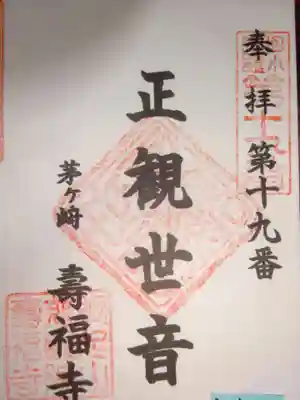 奉拝 第十九番
正観世音
茅ヶ崎 壽福寺